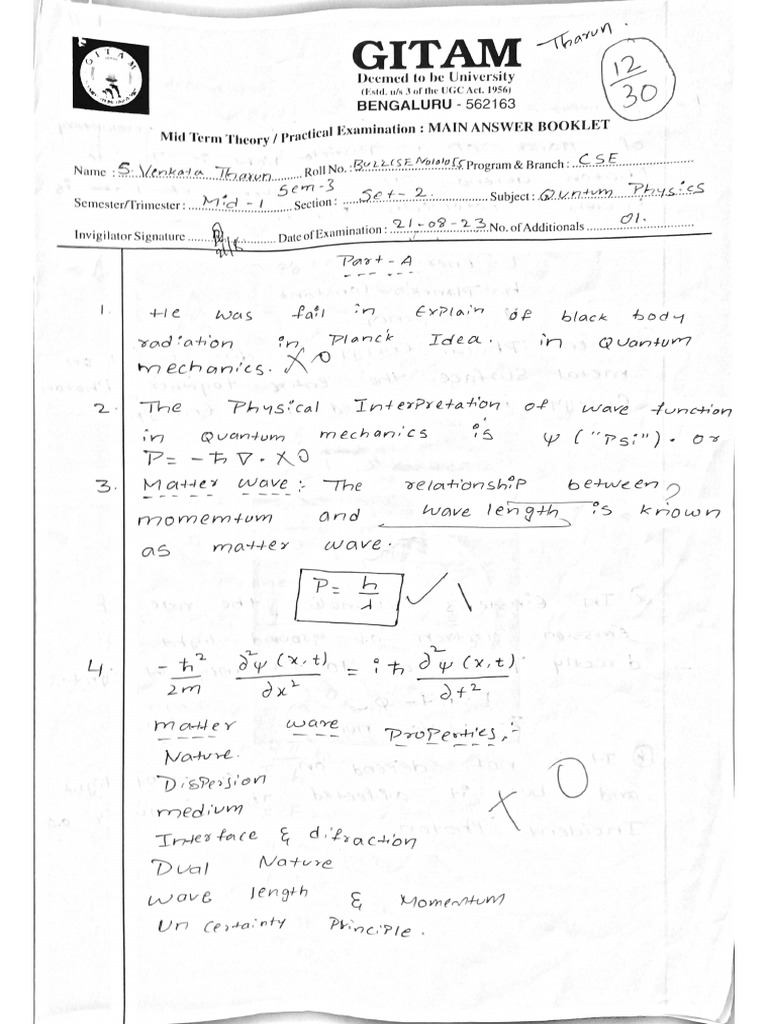 GITAM
Deemed to be University
(Estd. u/s 3 of the UGC Act. 1956)
BENGALURU - 562163
Tharun.
12
30
GITAM
Mid Term Theory / Practical Examination : MAIN ANSWER BOOKLET
Name : S. Venkata Tharun Roll No. : Program & Branch : CSE
Semester/Trimester : Mid - 1 Sem-3 Section : Set-2 Subject : Quntum Physics
Invigilator Signature Date of Examination : 21-08-23 No. of Additionals 01.
Part - A
1. He was fail in Explain of black body
radiation in Planck Idea. in Quantum
mechanics. X 0
2. The Physical Interpretation of wave function
in Quantum mechanics is ψ ("Psi"). or
P = -ħ ∇ . X 0
3. Matter wave :- The relationship between
momemtum and wave length is known
as matter wave.
P = h/λ ✓ 1
4. -ħ²/2m ∂²ψ(x,t)/∂x² = iħ ∂²ψ(x,t)/∂t²
matter wave Properties :-
Nature.
Dispersion
medium
Interface & difraction
X 0
Dual Nature
wave length & Momentum
Un certainty Principle.